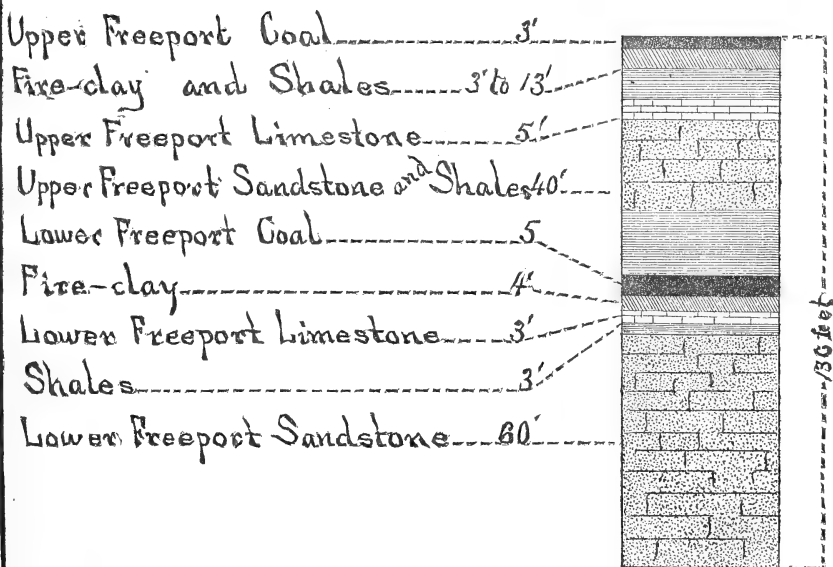 Upper Freeport Coal 3'
Fire-clay and Shales 3' to 13'
Upper Freeport Limestone 5'
Upper Freeport Sandstone and Shales 40'
Lower Freeport Coal 5
Fire-clay 4'
Lower Freeport Limestone 3'
Shales 3'
Lower Freeport Sandstone 60'
136 feet